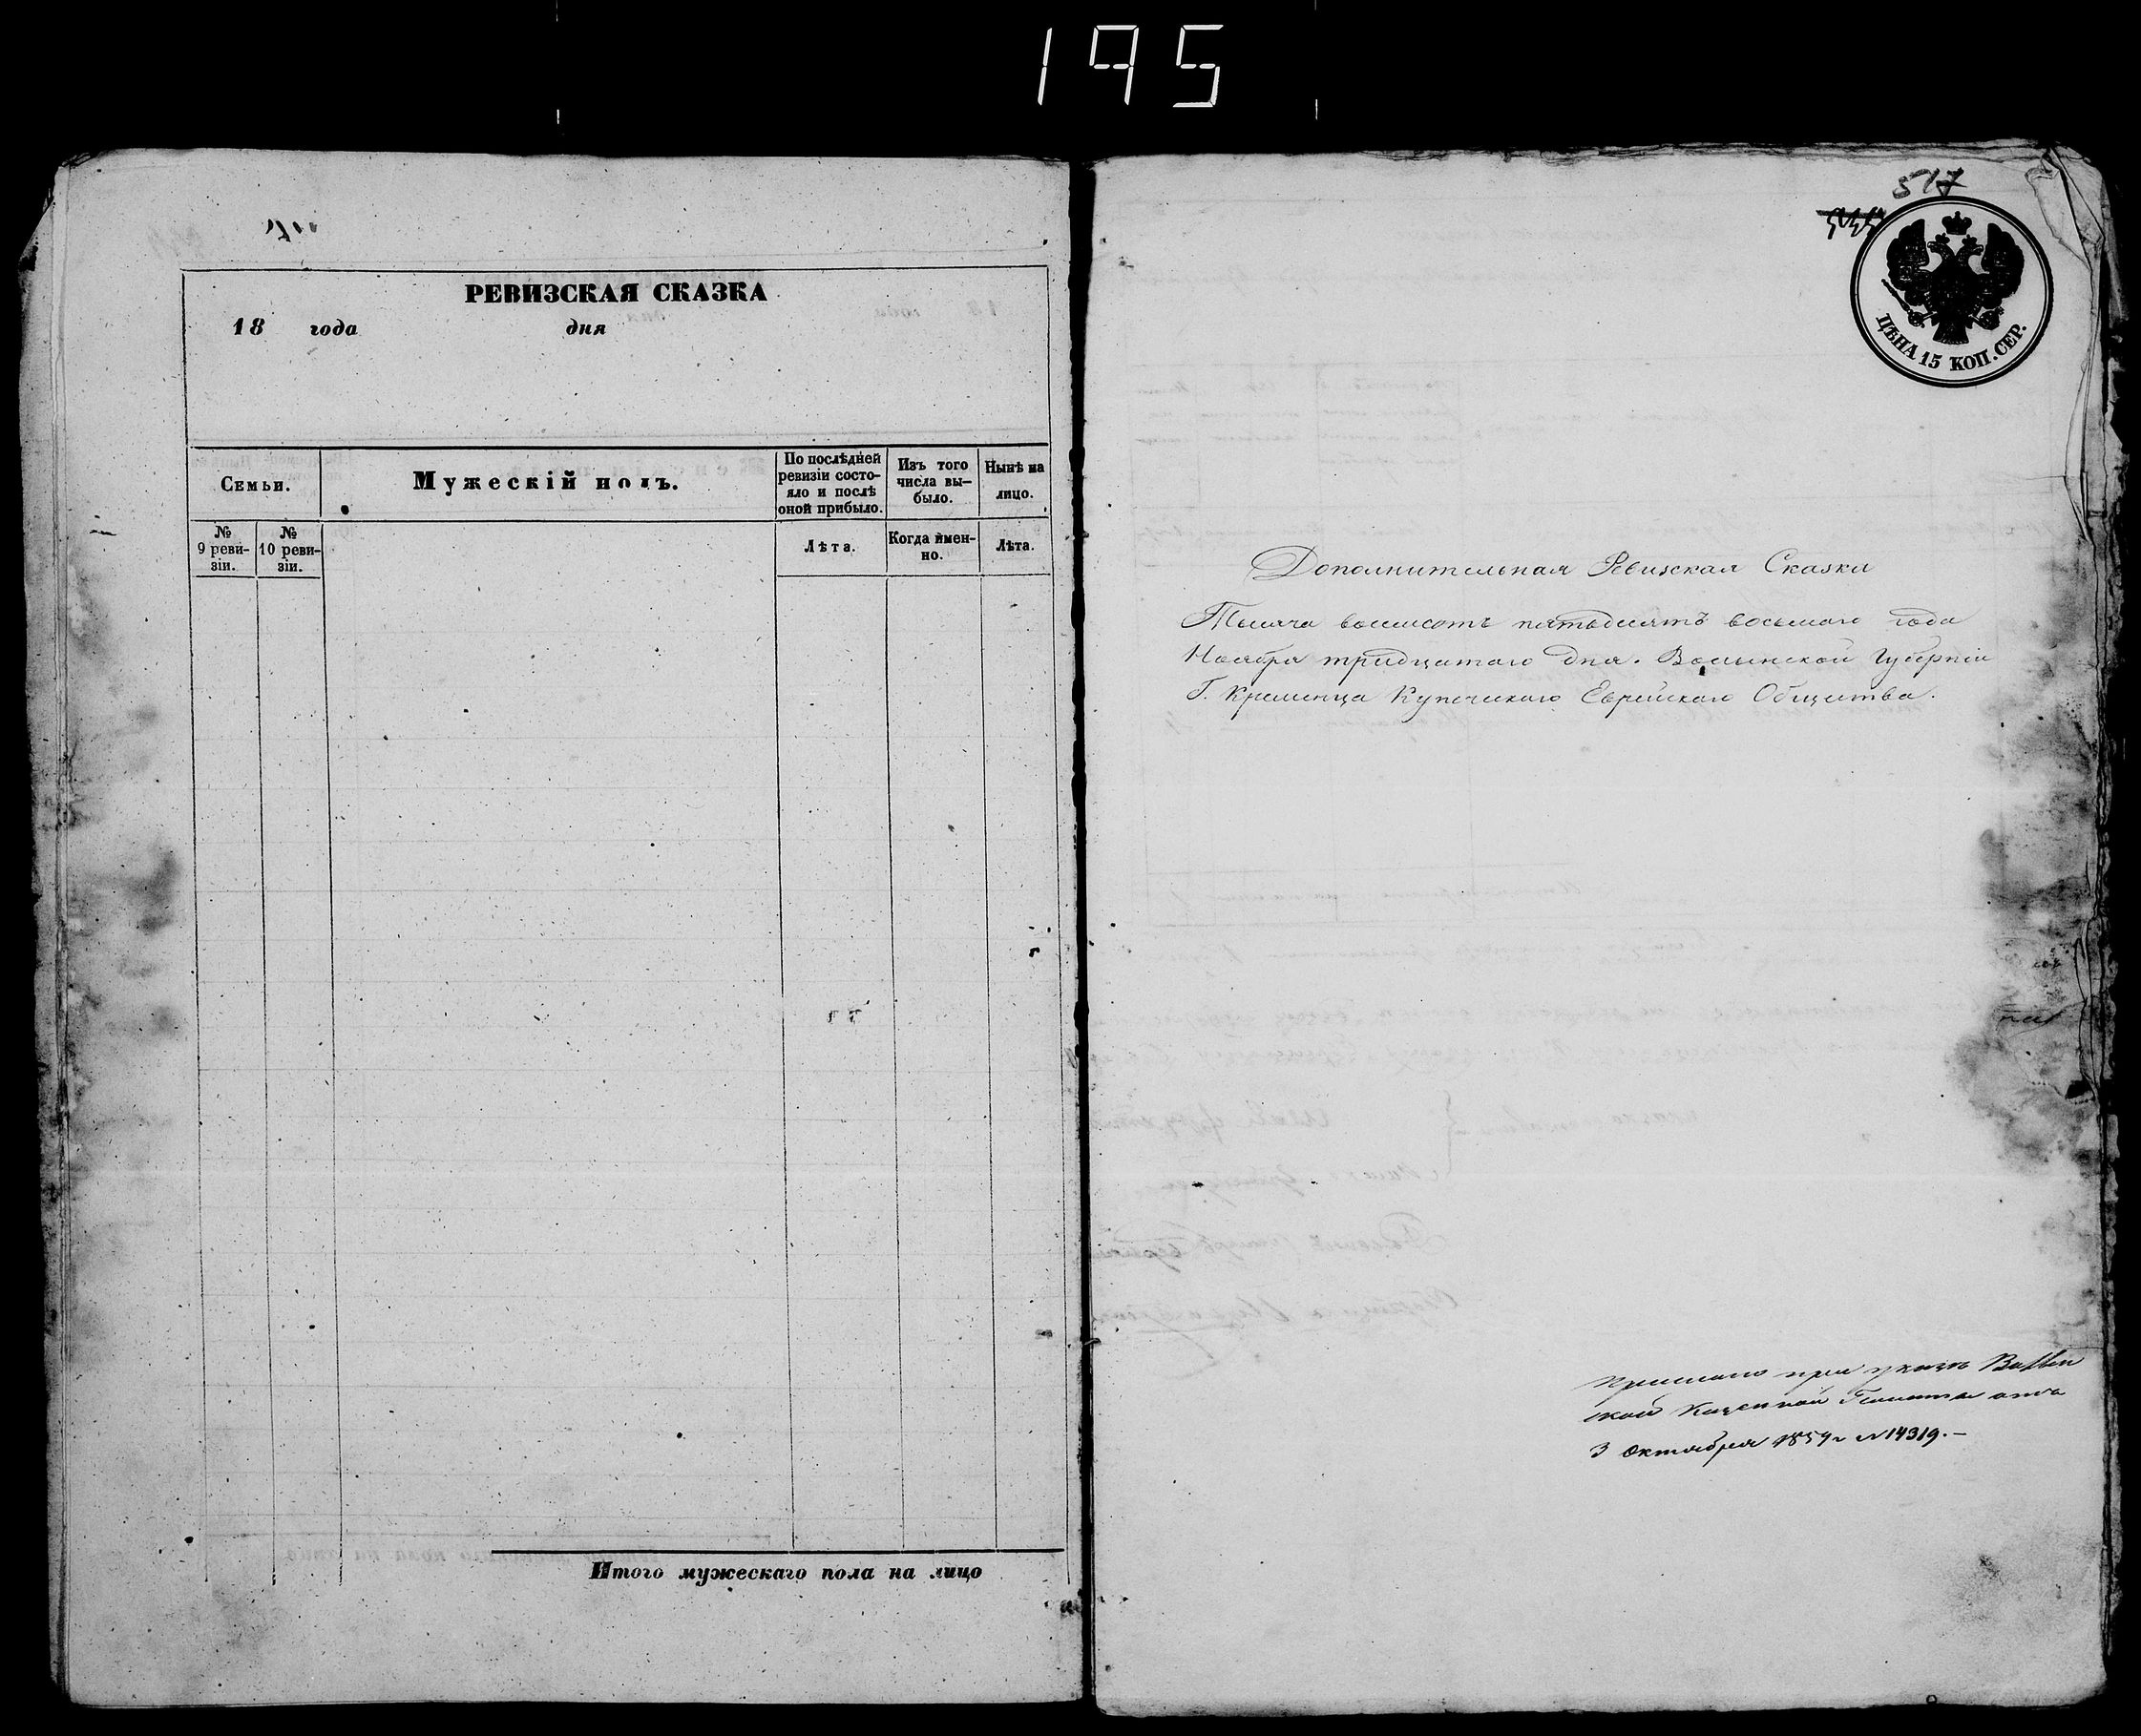 195
РЕВИЗСКАЯ СКАЗКА
18 года дня
Семьи.
Мужескій полъ.
По послѣдней ревизіи состо-
яло и послѣ
оной прибыло.
Изъ того
числа вы-
было.
Нынѣ на
лицо.
№
9 реви-
зіи.
№
10 реви-
зіи.
Лѣта.
Когда имен-
но.
Лѣта.
Итого мужескаго пола на лицо
517
ЦѢНА 15 КОП. СЕР.
Дополнительная Ревизская Сказка
Тысяча восемсотъ пятьдесятъ восьмаго года
Ноября тридцатаго дня. Волынской Губерніи
Г. Кременца Купеческаго Еврейскаго Общества.
при указѣ
ской Казенной Палаты отъ
3 Октября № 14319.—